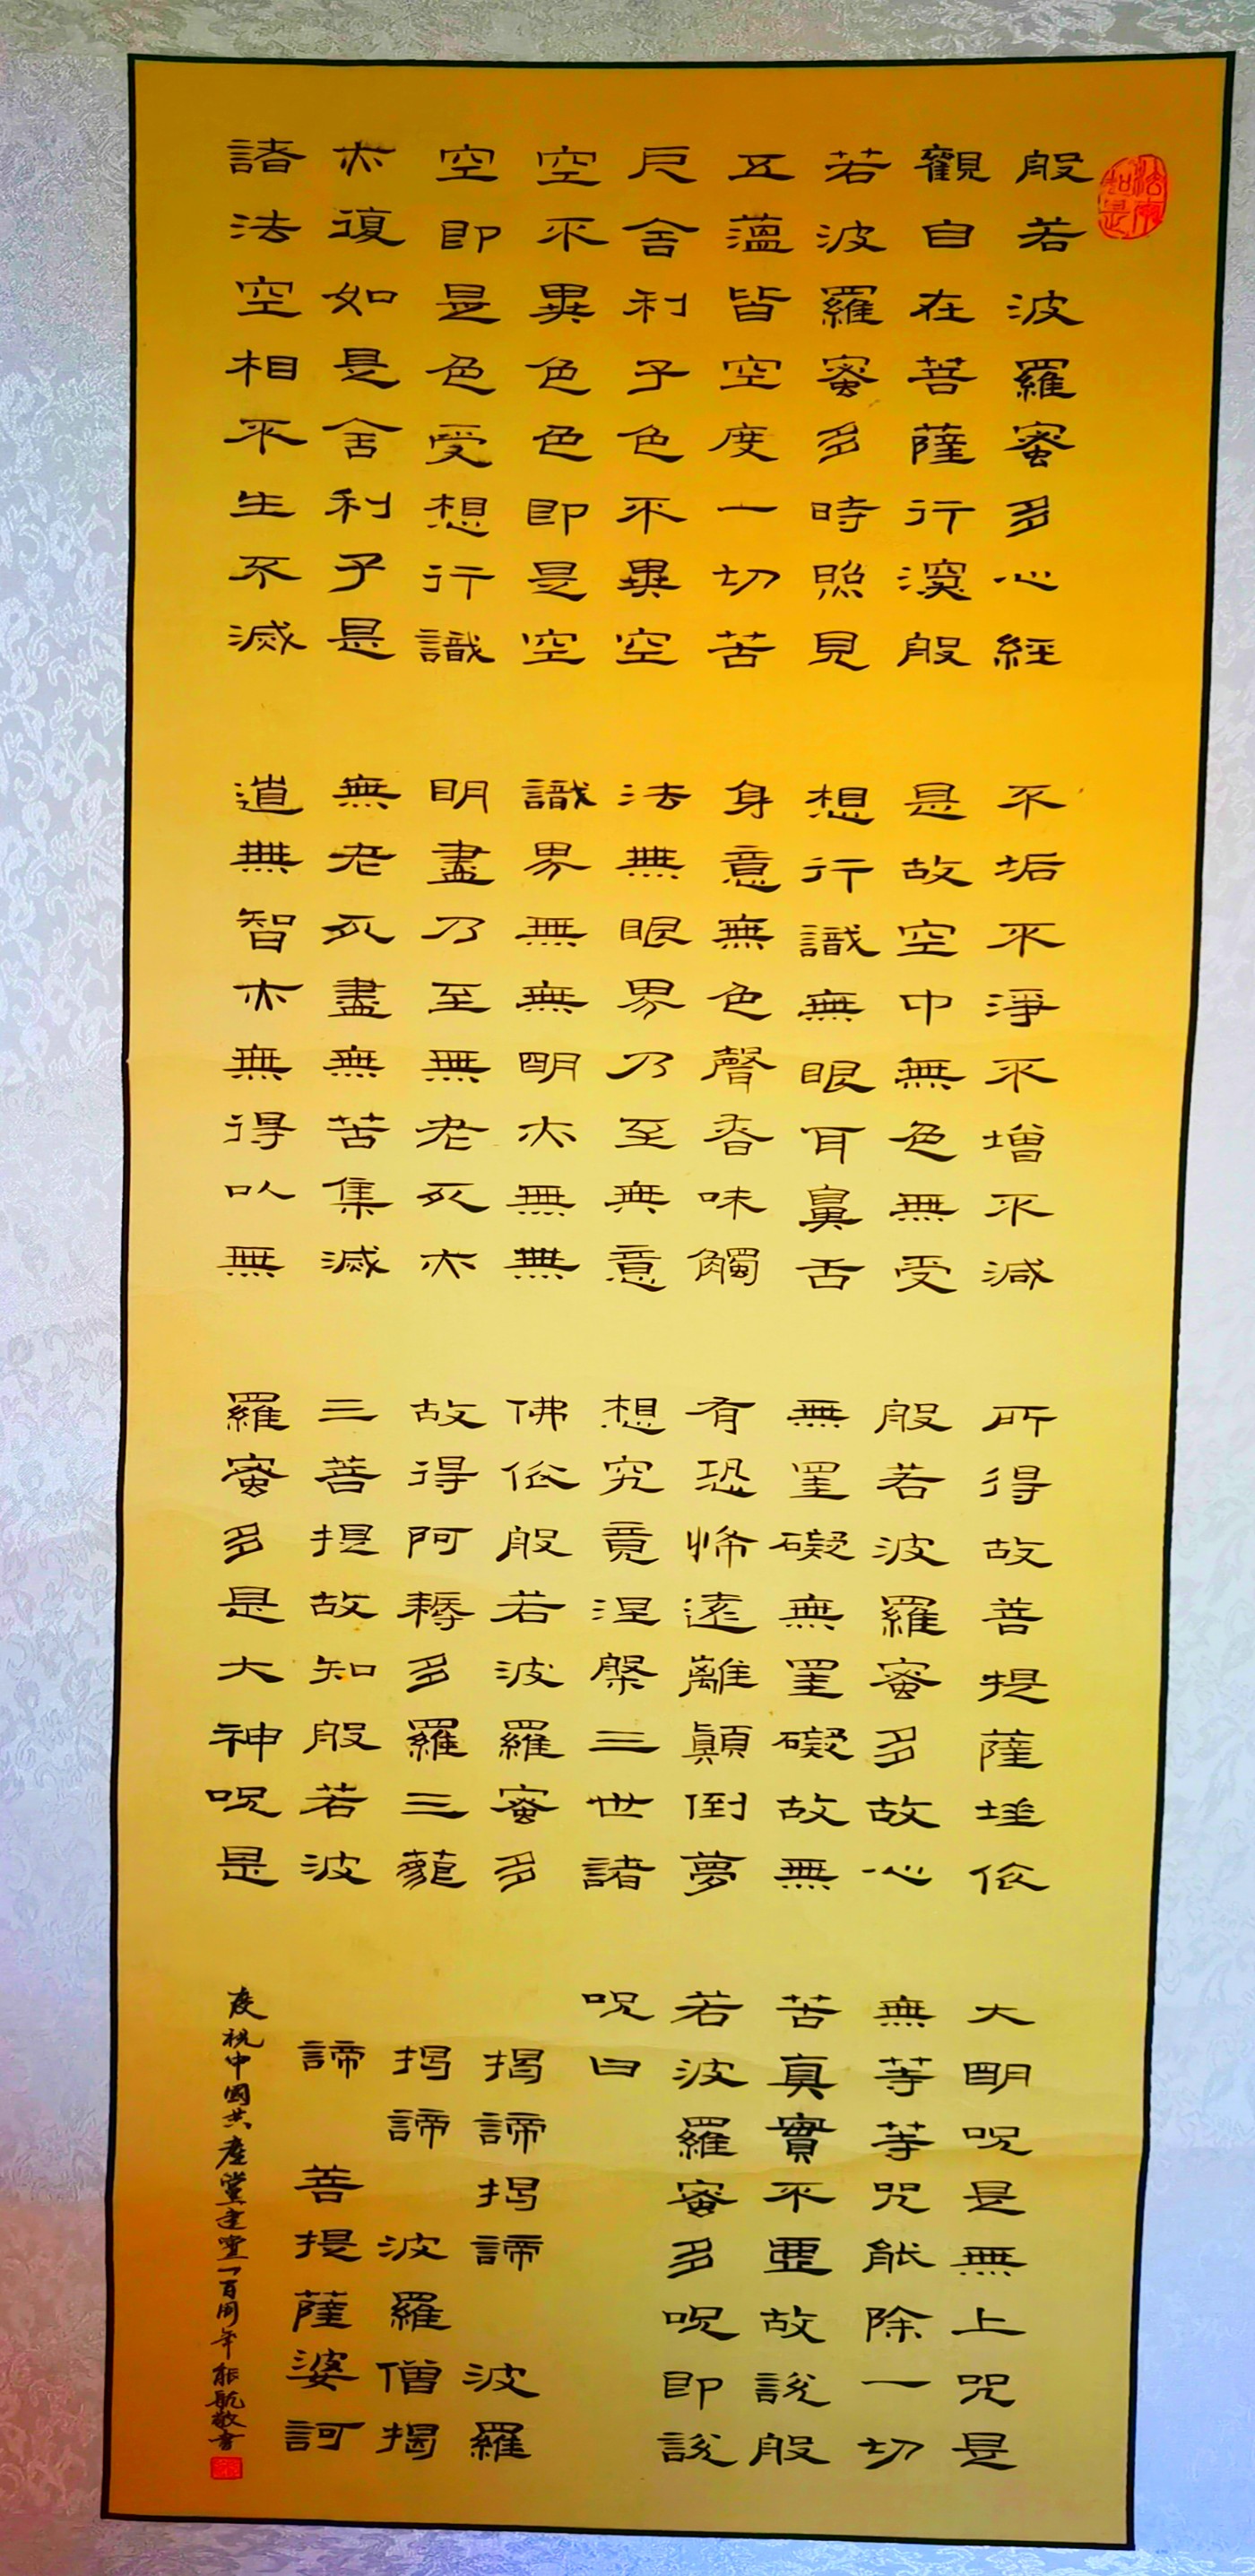 法尔如是
般若波羅蜜多心經
觀自在菩薩行深般
若波羅蜜多時照見
五蘊皆空度一切苦
厄舍利子色不異空
空不異色色即是空
空即是色受想行識
亦復如是舍利子是
諸法空相不生不滅
不垢不淨不增不減
是故空中無色無受
想行識無眼耳鼻舌
身意無色聲香味觸
法無眼界乃至無意
識界無無明亦無無
明盡乃至無老死亦
無老死盡無苦集滅
道無智亦無得以無
所得故菩提薩埵依
般若波羅蜜多故心
無罣礙無罣礙故無
有恐怖遠離顛倒夢
想究竟涅槃三世諸
佛依般若波羅蜜多
故得阿耨多羅三藐
三菩提故知般若波
羅蜜多是大神呪是
大明呪是無上咒是
無等等咒能除一切
苦真實不虛故說般
若波羅蜜多呪即說
呪曰
揭諦揭諦 波羅
揭諦 波羅僧揭
諦 菩提薩婆訶
慶祝中國共產黨建黨一百周年能航敬書